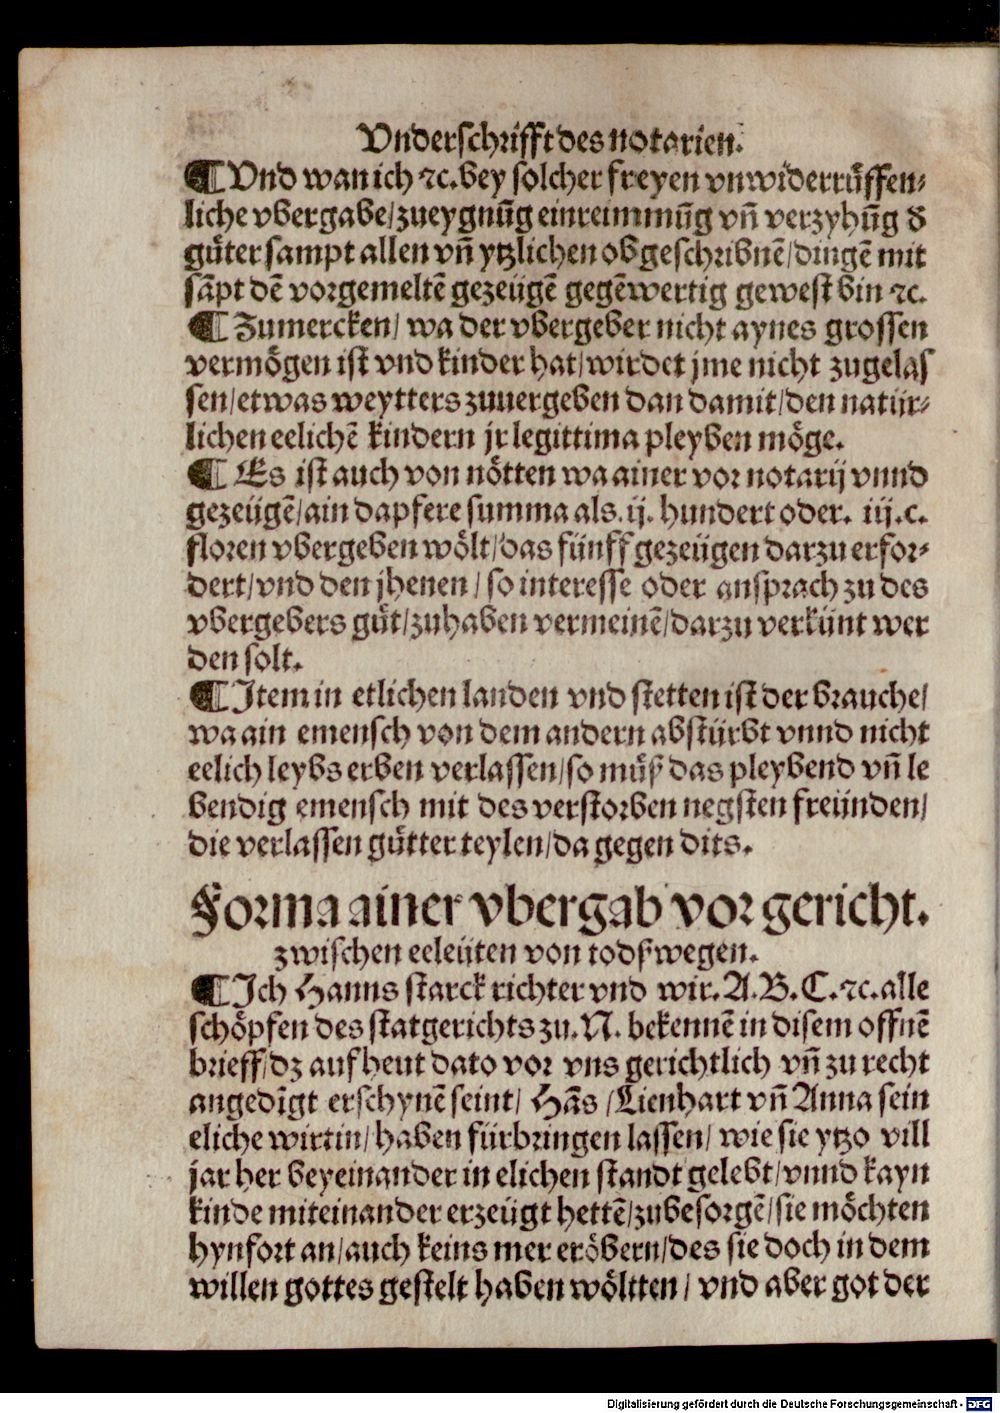 Vnderschrifft des notarien.
¶ Vnd wan ich ⁊c. bey solcher freyen vnwiderrůffen⸗
liche vbergabe/zueygnūg einreimmūg vñ verzyhūg d̄
gůter sampt allen vñ ytzlichen obgeschribnē/dingē mit
sāpt dē vorgemeltē gezeügē gegēwertig gewest bin ⁊c.
¶ Zumercken/ wa der vbergeber nicht aynes grossen
vermögen ist vnd kinder hat/wirdet jme nicht zugelas
sen/etwas weytters zuuergeben dan damit/den natür⸗
lichen eelichē kindern jr legittima pleyben möge.
¶ Es ist auch von nötten wa ainer vor notarij vnnd
gezeügē/ain dapfere summa als. ij. hundert oder. iij.c.
floren vbergeben wölt/das fünff gezeügen darzu erfor⸗
dert/vnd den jhenen/ so interesse oder ansprach zu des
vbergebers gůt/zuhaben vermeinē/darzu verkünt wer
den solt.
¶ Item in etlichen landen vnd stetten ist der brauche/
wa ain emensch von dem andern abstürbt vnnd nicht
eelich leybs erben verlassen/so můß das pleybend vñ le
bendig emensch mit des verstorben negsten freünden/
die verlassen gůtter teylen/da gegen dits.
Forma ainer vbergab vor gericht.
zwischen eeleüten von todß wegen.
¶ Ich Hanns starck richter vnd wir. A.B.C.⁊c. alle
schöpfen des statgerichts zu. N. bekennē in disem offnē
brieff/dz auf heut dato vor vns gerichtlich vñ zu recht
angedīgt erschynē seint/ Hās /Lienhart vñ Anna sein
eliche wirtin/haben fürbringen lassen/ wie sie ytzo vill
jar her beyeinander in elichen standt gelebt/vnnd kayn
kinde miteinander erzeügt hettē/zubesorgē/sie möchten
hynfort an/auch keins mer eröbern/des sie doch in dem
willen gottes gestelt haben wöltten/ vnd aber got der
Digitalisierung gefördert durch die Deutsche Forschungsgemeinschaft - DFG